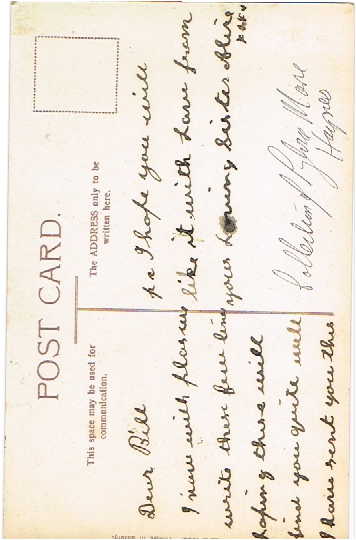 POST CARD.
This space may be used for
communication.
The ADDRESS only to be
written here.
Dear Bill
I now with pleasure
write these few lines
hoping these will
find you quite well
I have sent you this
pc I hope you will
like it with love from
your Loving Sister Alice
xxxx
Collection of
Haynes